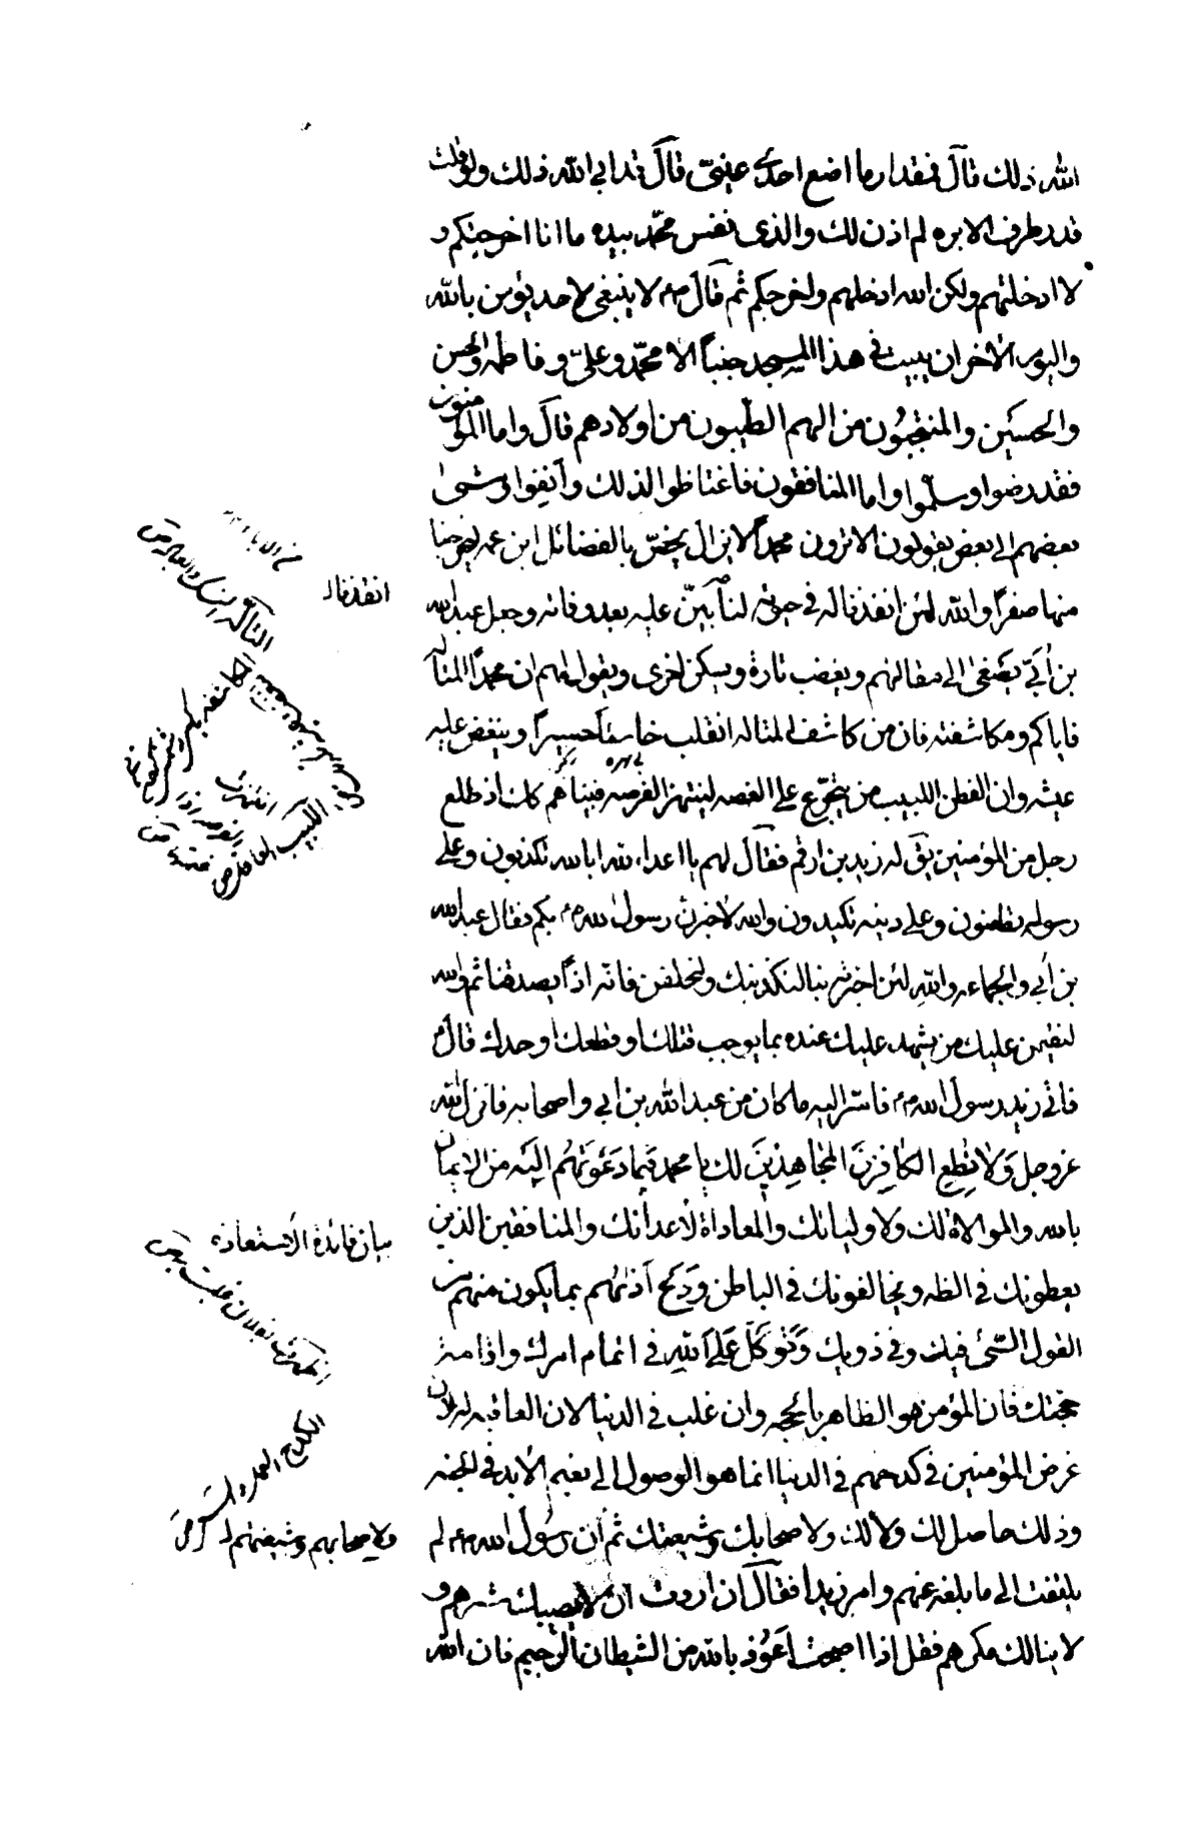 الله ذلك قال فمقدار ما اضع احدى عينيّ قال قد ابى الله ذلك ولو قلت
قدر طرف الابره لم اذن لك والذى نفس محمّد بيده ما انا اخرجتكم و
لا ادخلتهم ولكن الله ادخلهم واخرجكم ثم قال لا ينبغى لاحد يؤمن بالله
واليوم الاخر ان يبيت فى هذا المسجد جنباً الا محمّد وعلىّ وفاطمه والحسن
والحسين والمنتجبُون من الهم الطّيبون من اولادهم قال واما المؤمنون
فقد رضوا وسلّموا واما المنافقون فاغتاظوا لذلك وأنِفِوا ومشى
بعضهم الى بعض يقولون الا ترون محمداً لا يزال يخصّ بالفضائل ابن عمه ليخرجنا
منها صفراً والله لئن انفذنا له فى حيوته لنأبينّ عليه بعد وفاته وجعل عبدالله
بن أبَىّ يصغى الى مقالتهم ويغضب تارة ويسكن اخرى ويقول لهم ان محمداً لمتأله
فاياكم ومكاشفته فان من كاشف المتاله انقلب خاسئاً حسيراً وينغص عليه
عيشه وان الفطن اللبيب من يتجرّع على الغصه لينتهز الفرصه فبيناهم كذلك اذ طلع
رجل من المؤمنين يق له زيد بن ارقم فقال لهم يا اعداء الله ابالله تكذبون وعلى
رسوله تطعنون وعلى دينه تكيدون والله لاخبرنّ رسول الله بكم فقال عبد الله
بن أبي والجماعه والله لئن اخبرته بنا لنكذبنك ولنحلفن فانه اذاً يصدقنا ثم والله
لنقيمن عليك من يشهد عليك عنده بما يوجب قتلك او قطعك او حدك قال
فاتى زيد رسول الله فاسرّ اليه ما كان من عبد الله بن ابى واصحابه فانزل الله
عزوجل وَلا تُطِعِ الكافِرِينَ المجاهدِينَ لك يا محمد فيما دَعَوْتَهُم اليه من الايمان
بالله والموالاة لك ولاوليائك والمعاداة لأعدائك والمنافقين الذين
يعطونك فى الظه ويخالفونك فى الباطن ودَع أذيهُم بما يكون منهم من
القول السّىء فيك وفى ذويك وَتَوكَّلْ عَلَى اللهِ فى اتمام امرك واقامة
حجتك فان المؤمن هو الظاهر بالحجه وان غلب فى الدنيا لان العاقبه له لان
غرض المؤمنين فى كدحهم فى الدنيا انما هو الوصول الى نعيم الأبد فى الجنه
وذلك حاصل لك ولالك ولاصحابك وشيعتك ثم ان رسول الله لم
يلتفت الى ما بلغه عنهم وامر زيدا فقال ان اردت ان لا يصيبك شرهم و
لا ينالك مكرهم فقل اذا اصبحت اَعُوذ بالله من الشيطان الرّجيم فان الله
انفذنا له
التأله التنسك والتعبد ص
اللبيب العاقل ص
بيان فائدة الأستعاذه
الكدح العمل والسعى ص
ولاصحابهم وشيعتهم